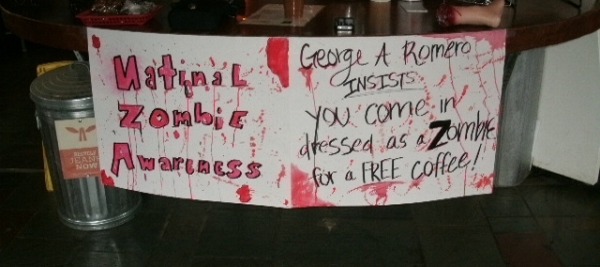 Natinal
Zombie
Awareness
George A Romero
INSISTS
you come in
dressed as a Zombie
for a FREE Coffee!